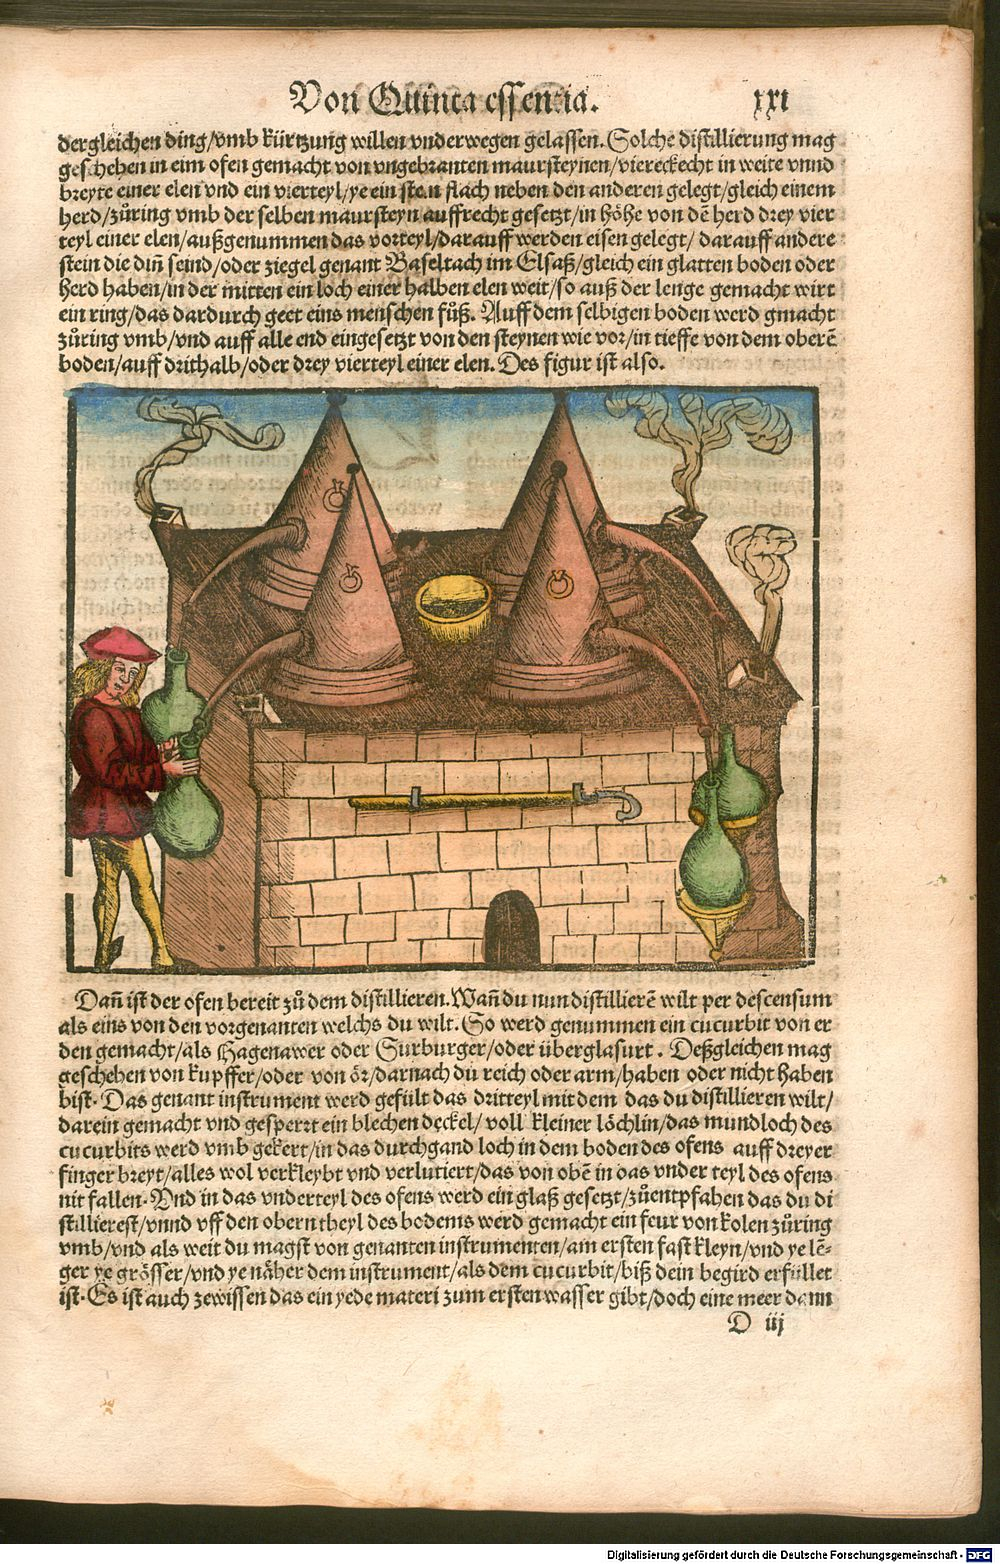 Von Quinta essentia. xxi
dergleichen ding/vmb kürtzung willen vnderwegen gelassen. Solche distillierung mag
geschehen in eim ofen gemacht von vngebranten maursteynen/viereckecht in weite vnnd
breyte einer elen vnd ein vierteyl/ye ein stein flach neben den anderen gelegt/gleich einem
herd/zůring vmb der selben maursteyn auffrecht gesetzt/in höhe von dē herd drey vier
teyl einer elen/außgenummen das vorteyl/darauff werden eisen gelegt/ darauff andere
stein die diñ seind/oder ziegel genant Baseltach im Elsaß/gleich ein glatten boden oder
herd haben/in der mitten ein loch einer halben elen weit/so auß der lenge gemacht wirt
ein ring/das dardurch geet eins menschen fůß. Auff dem selbigen boden werd gmacht
zůring vmb/vnd auff alle end eingesetzt von den steynen wie vor/in tieffe von dem oberē
boden/auff drithalb/oder drey vierteyl einer elen. Des figur ist also.
Dañ ist der ofen bereit zů dem distillieren. Wañ du nun distillierē wilt per descensum
als eins von den vorgenanten welchs du wilt. So werd genummen ein cucurbit von er
den gemacht/als Hagenawer oder Surburger/oder überglasurt. Deßgleichen mag
geschehen von kupffer/oder von ör/darnach du reich oder arm/haben oder nicht haben
bist. Das genant instrument werd gefült das dritteyl mit dem das du distillieren wilt/
darein gemacht vnd gesperrt ein blechen deckel/voll kleiner löchlin/das mundloch des
cucurbits werd vmb gekert/in das durchgand loch in dem boden des ofens auff dreyer
finger breyt/alles wol verkleybt vnd verlutiert/das von obē in das vnder teyl des ofens
nit fallen. Vnd in das vnderteyl des ofens werd ein glaß gesetzt/zůentpfahen das du di
stillierest/vnnd vff den obern theyl des bodems werd gemacht ein feur von kolen zůring
vmb/vnd als weit du magst von genanten instrumenten/am ersten fast kleyn/vnd ye lē⸗
ger ye grösser/vnd ye näher dem instrument/als dem cucurbit/biß dein begird erfüllet
ist. Es ist auch zewissen das ein yede materi zum ersten wasser gibt/doch eine meer dann
D iij
Digitalisierung gefördert durch die Deutsche Forschungsgemeinschaft - DFG